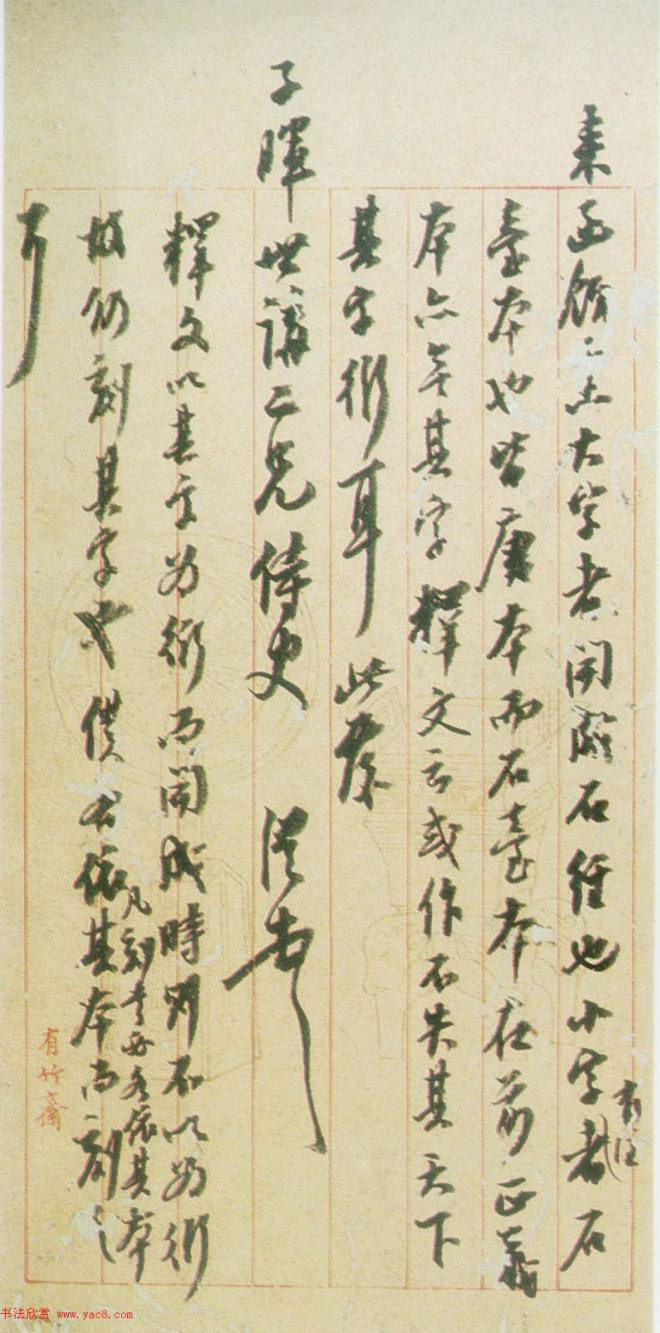 来函二大字者開成石經也小字者石
有注
臺本也皆唐本而石臺本在前正義
本亦無其字釋文云或作不失其天下
其字衍耳此奉
子暉世講二兄侍史
釋文以其字為衍而開成時則不以為衍
故仍刻其字也依其本而刻之
凡刻書必各依其本
可
有竹齋
书法欣赏 www.yac8.com